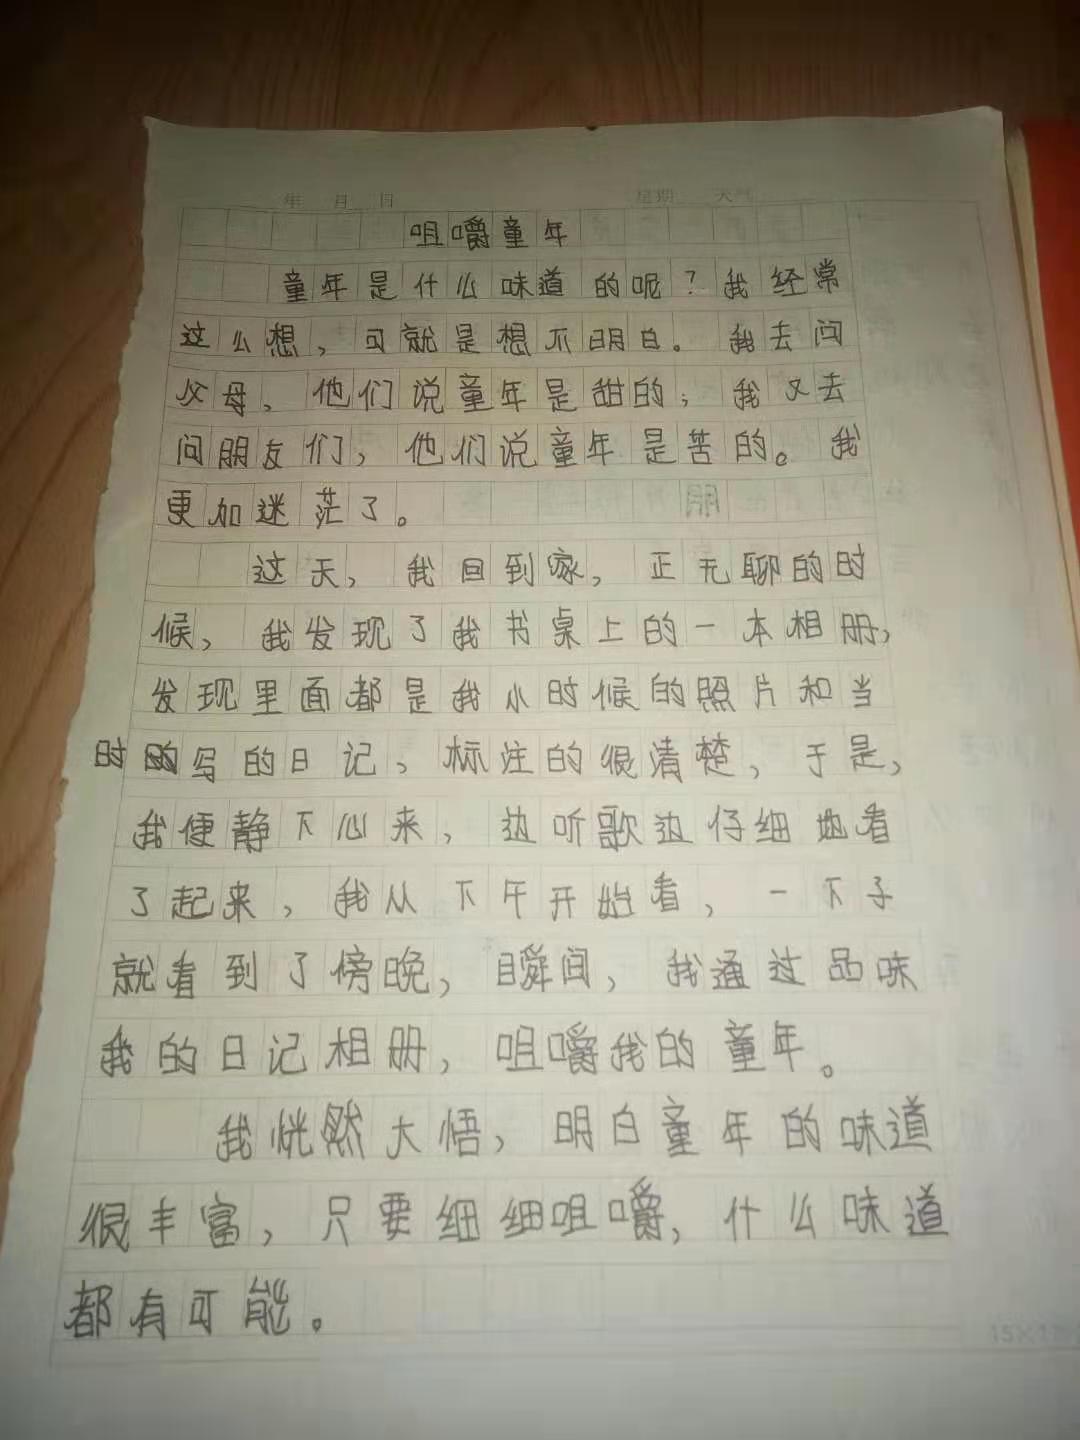 年 月 日 星期 天气
咀嚼童年
童年是什么味道的呢？我经常
这么想，可就是想不明白。我去问
父母，他们说童年是甜的；我又去
问朋友们，他们说童年是苦的。我
更加迷茫了。
这天，我回到家，正无聊的时
候，我发现了我书桌上的一本相册，
发现里面都是我小时候的照片和当
时写的日记，标注的很清楚，于是，
我便静下心来，边听歌边仔细地看
了起来，我从下午开始看，一下子
就看到了傍晚，瞬间，我通过品味
我的日记相册，咀嚼我的童年。
我恍然大悟，明白童年的味道
很丰富，只要细细咀嚼，什么味道
都有可能。